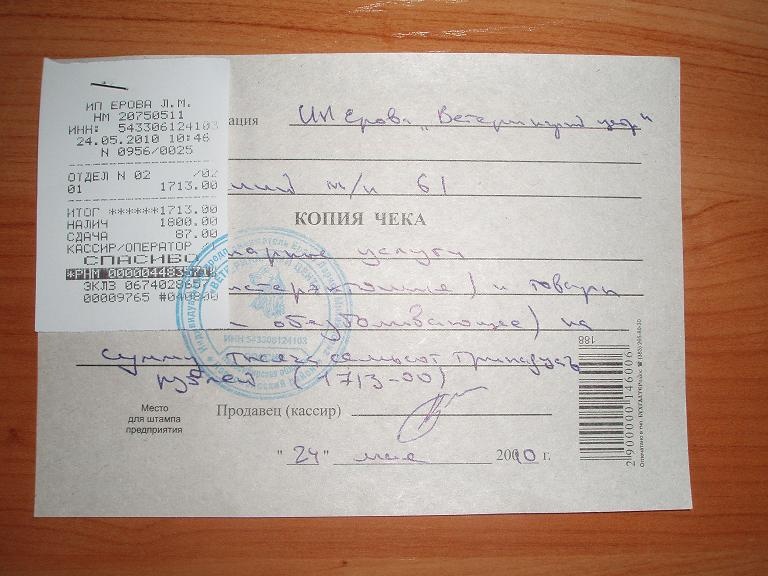 ИП ЕРОВА Л.М.
НМ 20750511
ИНН: 543306124103
24.05.2010 10:46
N 0956/0025
ОТДЕЛ N 02 /02
01 1713.00
ИТОГ ******1713.00
НАЛИЧ 1800.00
СДАЧА 87.00
КАССИР/ОПЕРАТОР
СПАСИБО
*РНМ
ЭКЛЗ 0674028657
00009765
ация ИП Ерова „Ветеринарный центр"
м/н 61
КОПИЯ ЧЕКА
нарные услуги
) и товары
обезболивающее) на
сумму тысяча семьсот тринадцать
рублей (1713-00)
ИНН 543306124103
Место
для штампа
предприятия
Продавец (кассир)
"24" мая 2010 г.
188
2 900000 146006